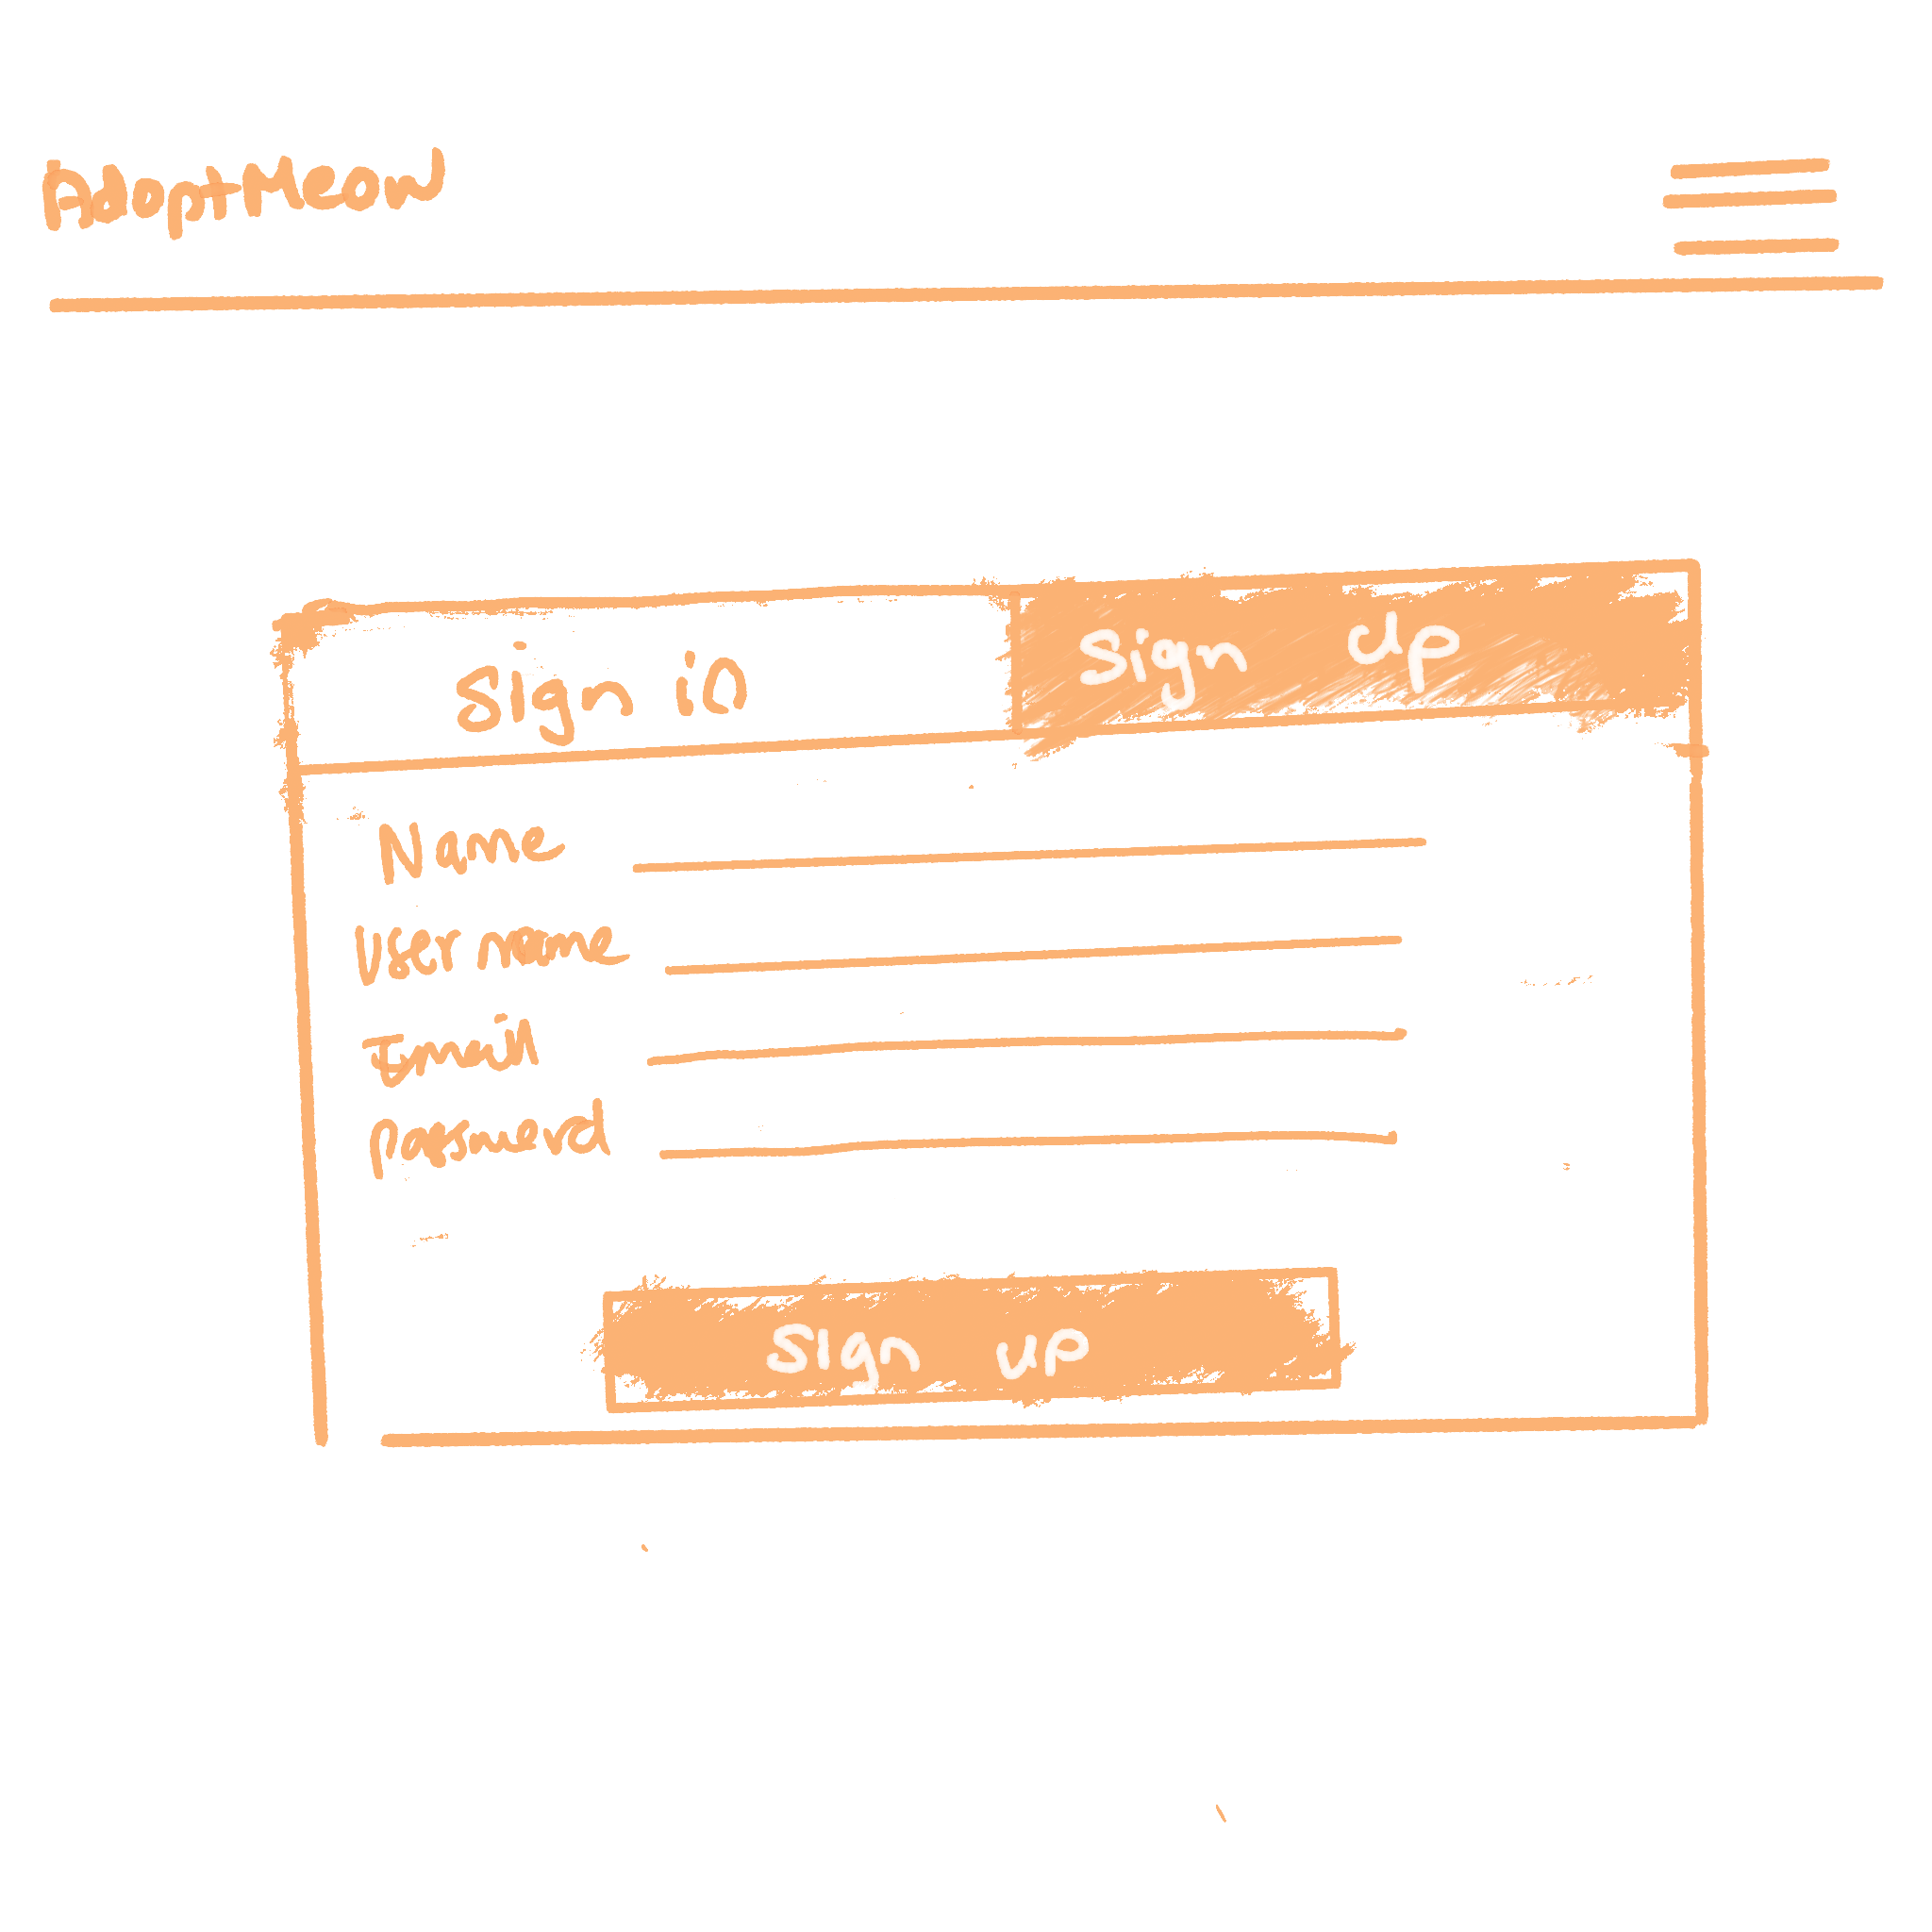 AdoptMeow
Sign in
Sign up
Name
Username
Email
Password
Sign up